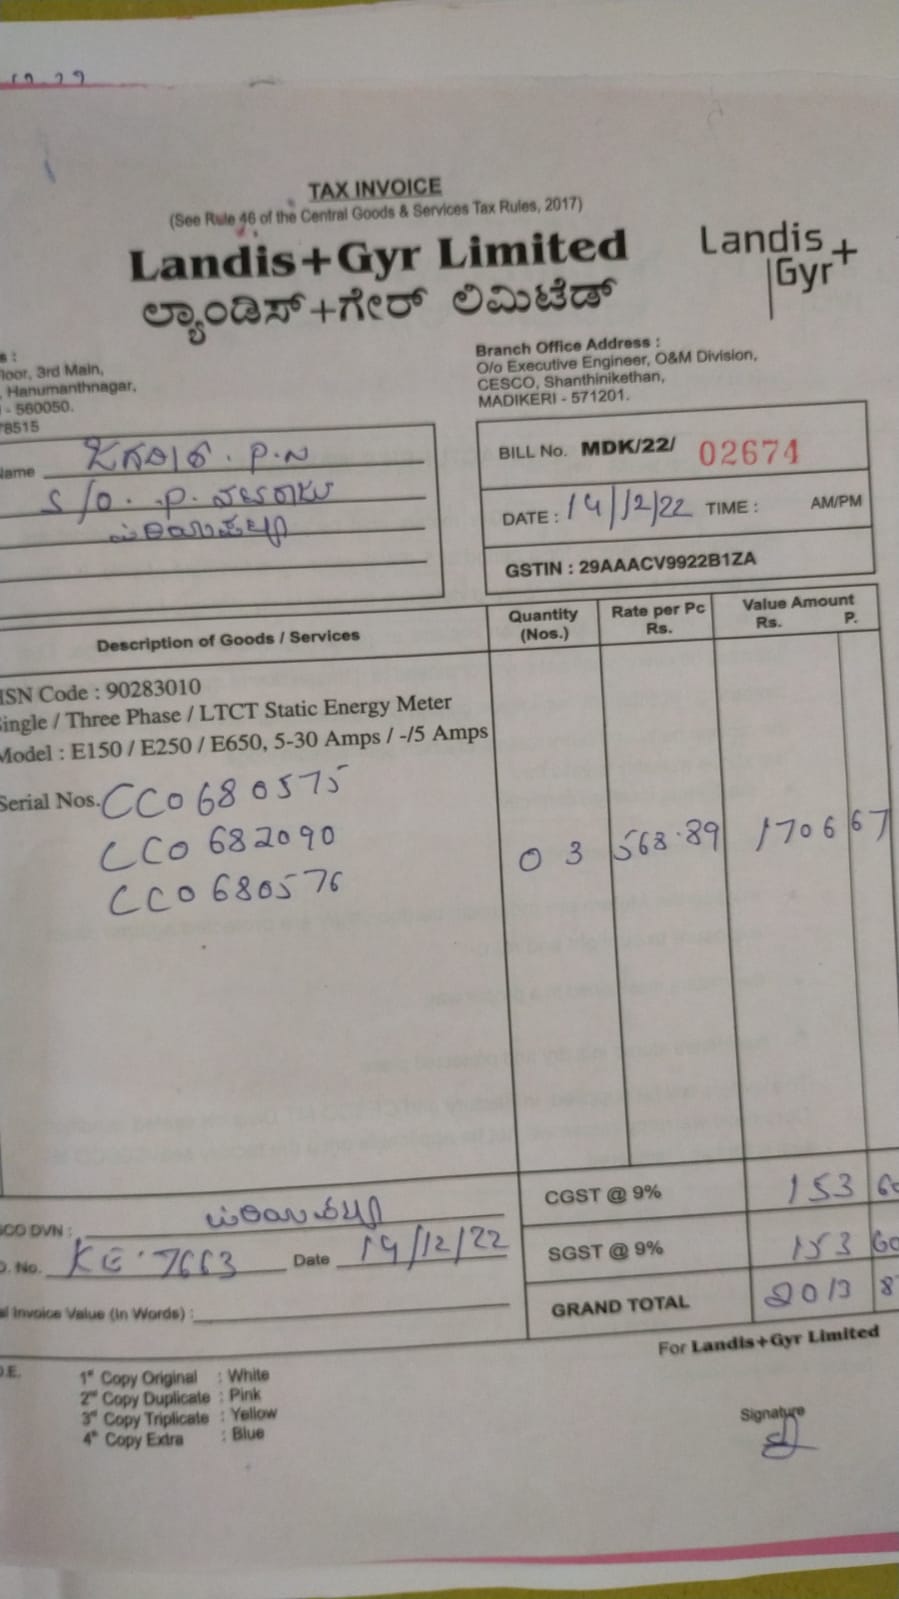 TAX INVOICE
(See Rule 46 of the Central Goods & Services Tax Rules, 2017)
Landis+Gyr Limited
ಲ್ಯಾಂಡಿಸ್+ಗೇರ್ ಲಿಮಿಟೆಡ್
Landis
Gyr+
s :
loor, 3rd Main,
, Hanumanthnagar,
- 560050.
78515
Branch Office Address :
O/o Executive Engineer, O&M Division,
CESCO, Shanthinikethan,
MADIKERI - 571201.
Name P.N
S/O. P.
BILL No. MDK/22/ 02674
DATE : 14/12/22 TIME : AM/PM
GSTIN : 29AAACV9922B1ZA
Description of Goods / Services
Quantity
(Nos.)
Rate per Pc
Rs.
Value Amount
Rs. P.
HSN Code : 90283010
Single / Three Phase / LTCT Static Energy Meter
Model : E150 / E250 / E650, 5-30 Amps / -/5 Amps
Serial Nos. CC0680575
CC0682090
CC0680576
03 568.89 1706 67
CGST @ 9% 153 60
SGST @ 9% 153 60
GRAND TOTAL 2013 8
CO DVN :
No. KE 7663 Date 14/12/22
Invoice Value (In Words) :
For Landis+Gyr Limited
O.E.
1st Copy Original : White
2nd Copy Duplicate : Pink
3rd Copy Triplicate : Yellow
4th Copy Extra : Blue
Signature